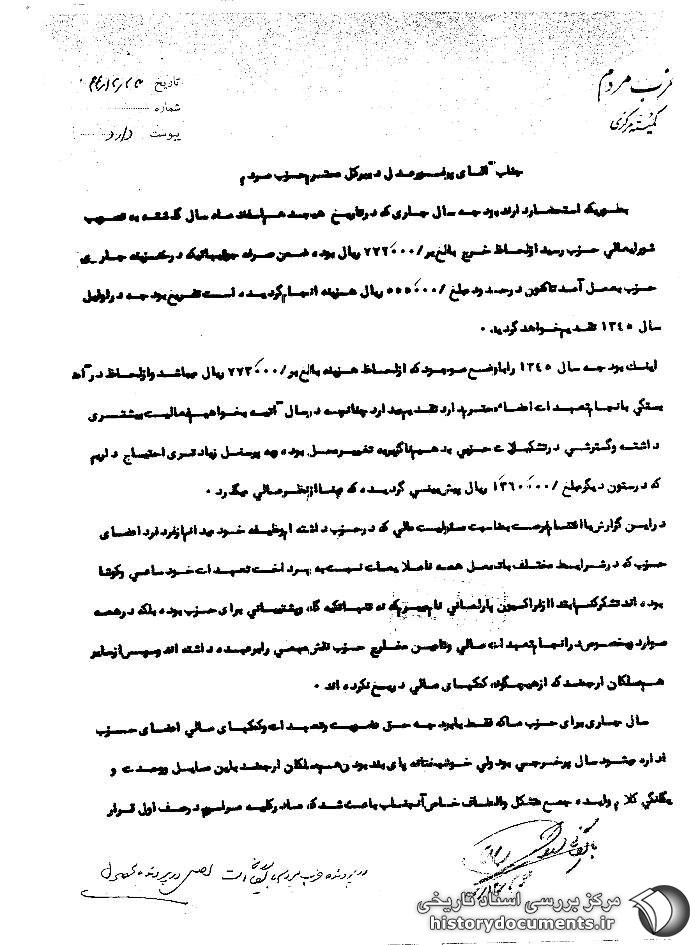 حزب مردم
کمیته مرکزی
تاریخ
شماره
پیوست دارد
جناب آقای پرفسور عدل دبیرکل محترم حزب مردم
بطوریکه استحضار دارند بودجه سال جاری که در تاریخ هیجدهم اسفند ماه سال گذشته به تصویب
شورایعالی حزب رسید از لحاظ خرج بالغ بر /۷۲۲۰۰۰ ریال بوده ضمن صرفه جوئیهائیکه در هزینه جاری
حزب بعمل آمد تاکنون در حدود مبلغ /۵۵۵۰۰۰ ریال هزینه انجام گردیده است تفریغ بودجه در اوایل
سال ۱۳٤۵ تقدیم خواهد گردید .
اینک بودجه سال ۱۳٤۵ را با وضع موجود که از لحاظ هزینه بالغ بر /۷۷۳۰۰۰ ریال میباشد و از لحاظ درآمد
بستگی بانجام تعهدات اعضاء محترم دارد تقدیم میدارد چنانچه در سال آتیه بخواهیم فعالیت بیشتری
داشته و گسترشی در تشکیلات حزبی بدهیم ناگیربه تغییر محل بوده و به پرسنل زیادتری احتیاج داریم
که در ستون دیگر مبلغ /۱۳٦۰۰۰۰ ریال پیش بینی گردیده که از نظر عالی میگذرد .
در این گزارش با اغتنام فرصت بمناسبت مسئولیت مالی که در حزب داشته ام وظیفه خود میدانم از فرد فرد اعضای
حزب که در شرایط مختلف باتحمل همه ناملایمات نسبت به پرداخت تعهدات خود ساعی و کوشا
بوده اند تشکر کنم ابتدا از فراکسیون پارلمانی نام میبرم که نه تنها تکیه گاه و پشتیبانی برای حزب بوده بلکه در همه
موارد بخصوص در انجام تعهدات مالی و تامین مخارج حزب نقش مهمی را بر عهده داشته اند و سپس از سایر
هم مسلکان ارجمند که از هیچگونه کمکهای مالی دریغ نکرده اند .
سال جاری برای حزب ما که فقط با بودجه حق عضویت و تعهدات و کمکهای مالی اعضای حزب
اداره میشود سال پرخرجی بود ولی خوشبختانه پای بند بودن هم مسلکان ارجمند باین مسایل و وحدت و
یگانگی کلام و ایده جمع متشکل و الطاف خاص آنجناب باعث شد که ما در کلیه مراسم در صف اول قرار
بایگانی شود
در پرونده حزب مردم بایگانی است اصل در پرونده
مرکز بررسی اسناد تاریخی
historydocuments.ir